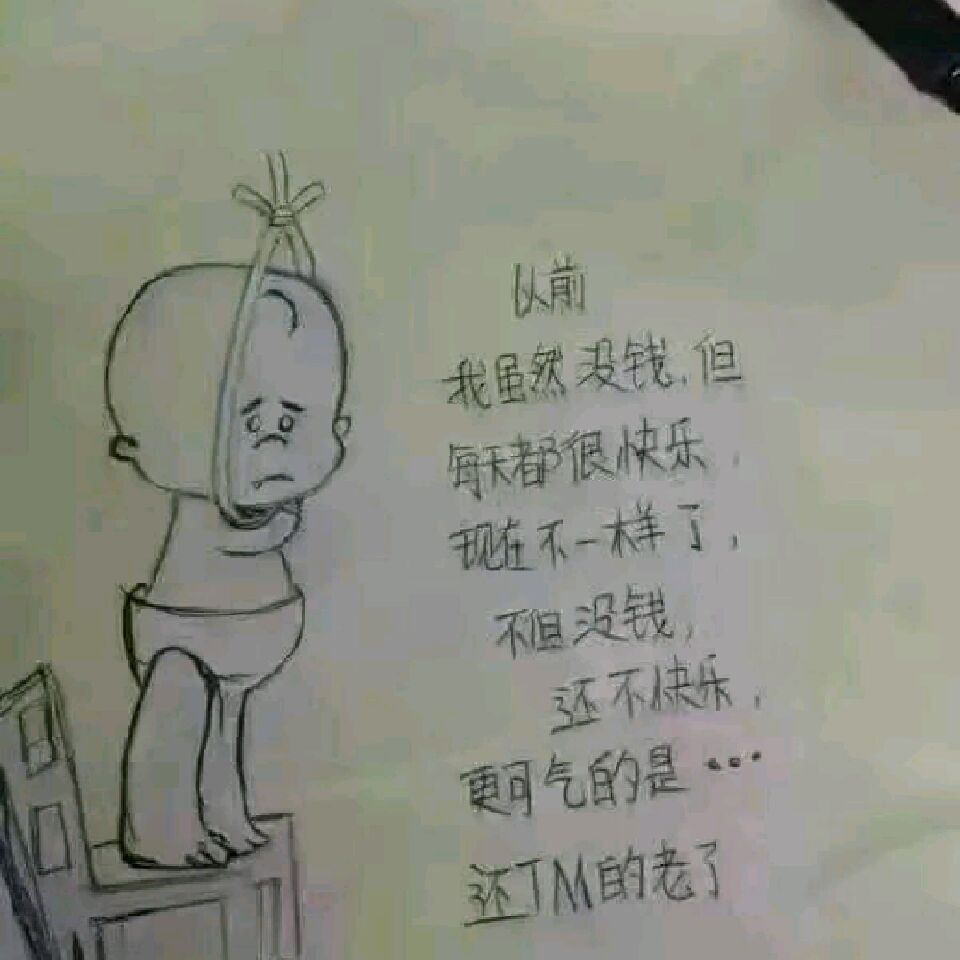 以前
我虽然没钱，但
每天都很快乐，
现在不一样了，
不但没钱，
还不快乐，
更可气的是…
还TM的老了